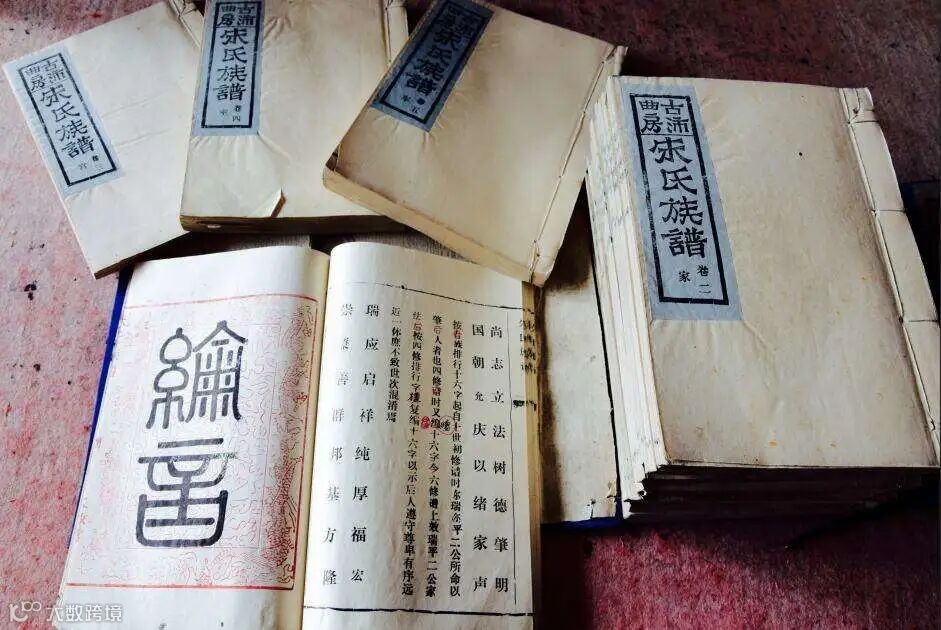 古沛
曲房
宋氏族譜
卷三
宫
古沛
曲房
宋氏族譜
卷四
宋
古沛
曲房
宋氏族譜
古沛
曲房
宋氏族譜
卷二
家
尚志立法树德肇明
国朝允庆以绪家声
按右族排行十六字起自十世初修谱时东瑞东平二公所命以
肇后人者也四修谱时又十六字今六修谱上敦瑞平二公家
法后按四修排行字复编十六字以示后人遵守尊卑有序远
近一体庶不致世次混淆焉
瑞应启祥纯厚福宏
崇善群邦基方隆
綸音
大数跨境